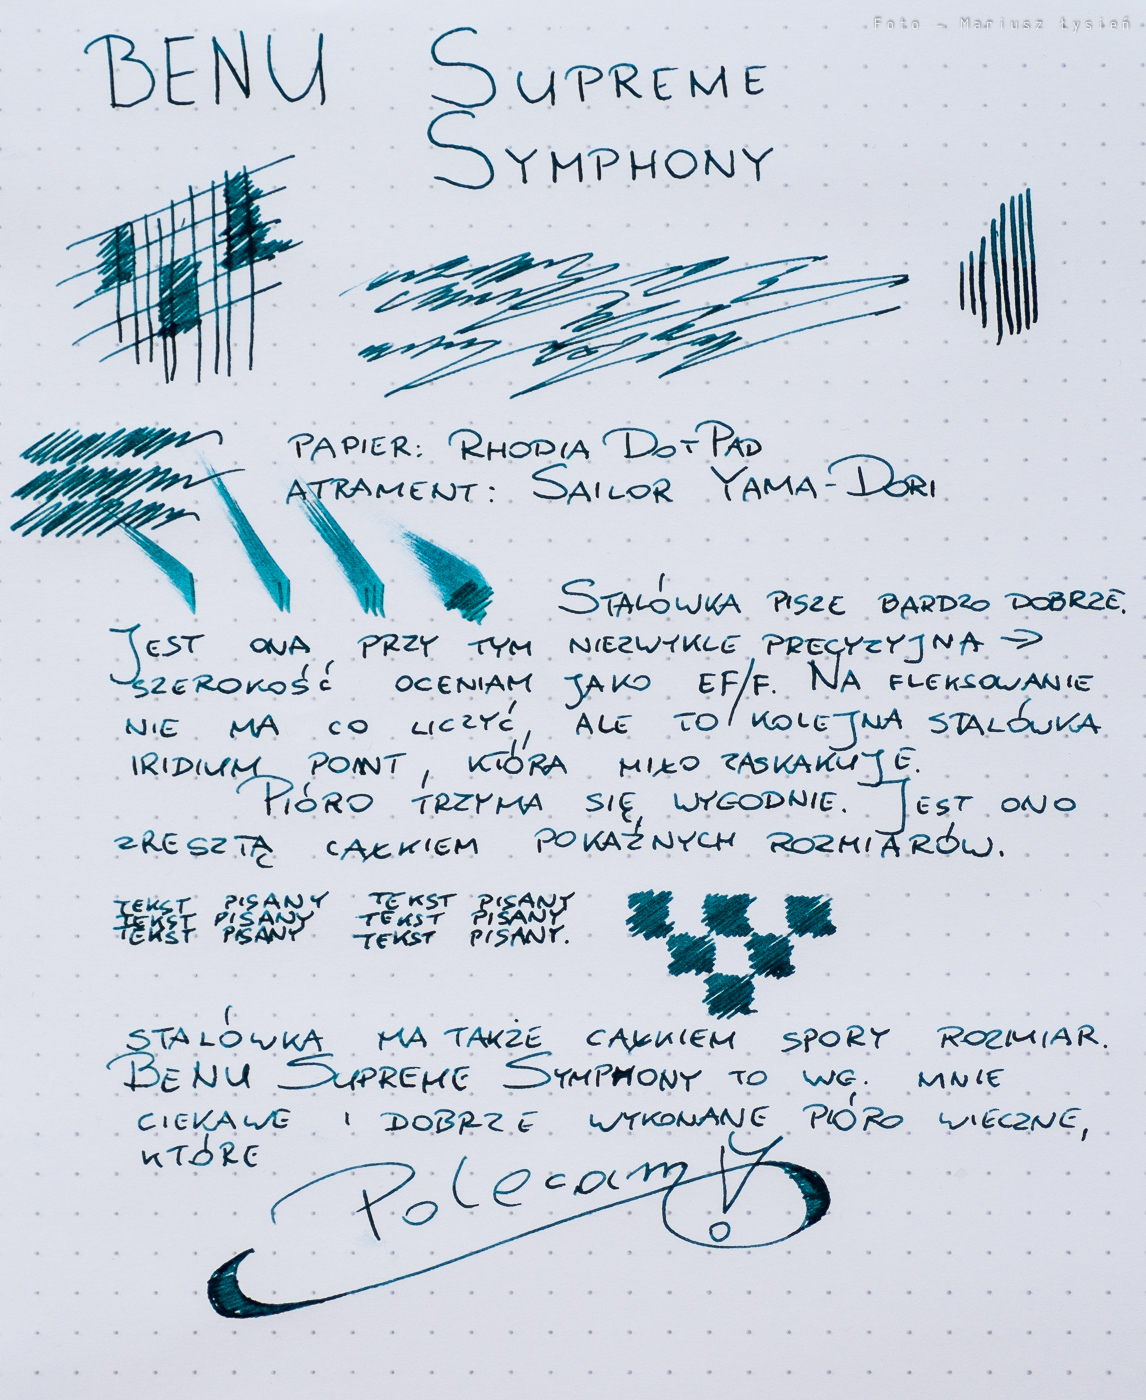 Foto - Mariusz Łysień
BENU SUPREME
SYMPHONY
PAPIER: RHODIA DOTPAD
ATRAMENT: SAILOR YAMA-DORI
STALÓWKA PISZE BARDZO DOBRZE.
JEST ONA PRZY TYM NIEZWYKLE PRECYZYJNA →
SZEROKOŚĆ OCENIAM JAKO EF/F. NA FLEKSOWANIE
NIE MA CO LICZYĆ, ALE TO KOLEJNA STALÓWKA
IRIDIUM POINT, KTÓRA MIŁO ZASKAKUJE.
PIÓRO TRZYMA SIĘ WYGODNIE. JEST ONO
ZRESZTĄ CAŁKIEM POKAŹNYCH ROZMIARÓW.
TEKST PISANY TEKST PISANY
TEKST PISANY TEKST PISANY
TEKST PISANY TEKST PISANY.
STALÓWKA MA TAKŻE CAŁKIEM SPORY ROZMIAR.
BENU SUPREME SYMPHONY TO WG. MNIE
CIEKAWE I DOBRZE WYKONANE PIÓRO WIECZNE,
KTÓRE
Polecam!